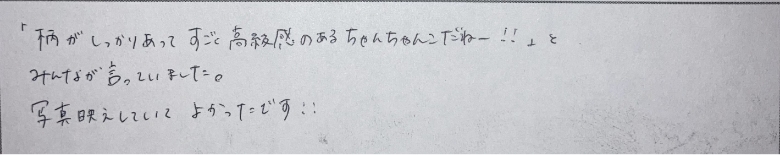 「柄がしっかりあってすごく高級感のあるちゃんちゃんこだねー!!」と
みんなが言っていました。
写真映えしていてよかったです!!